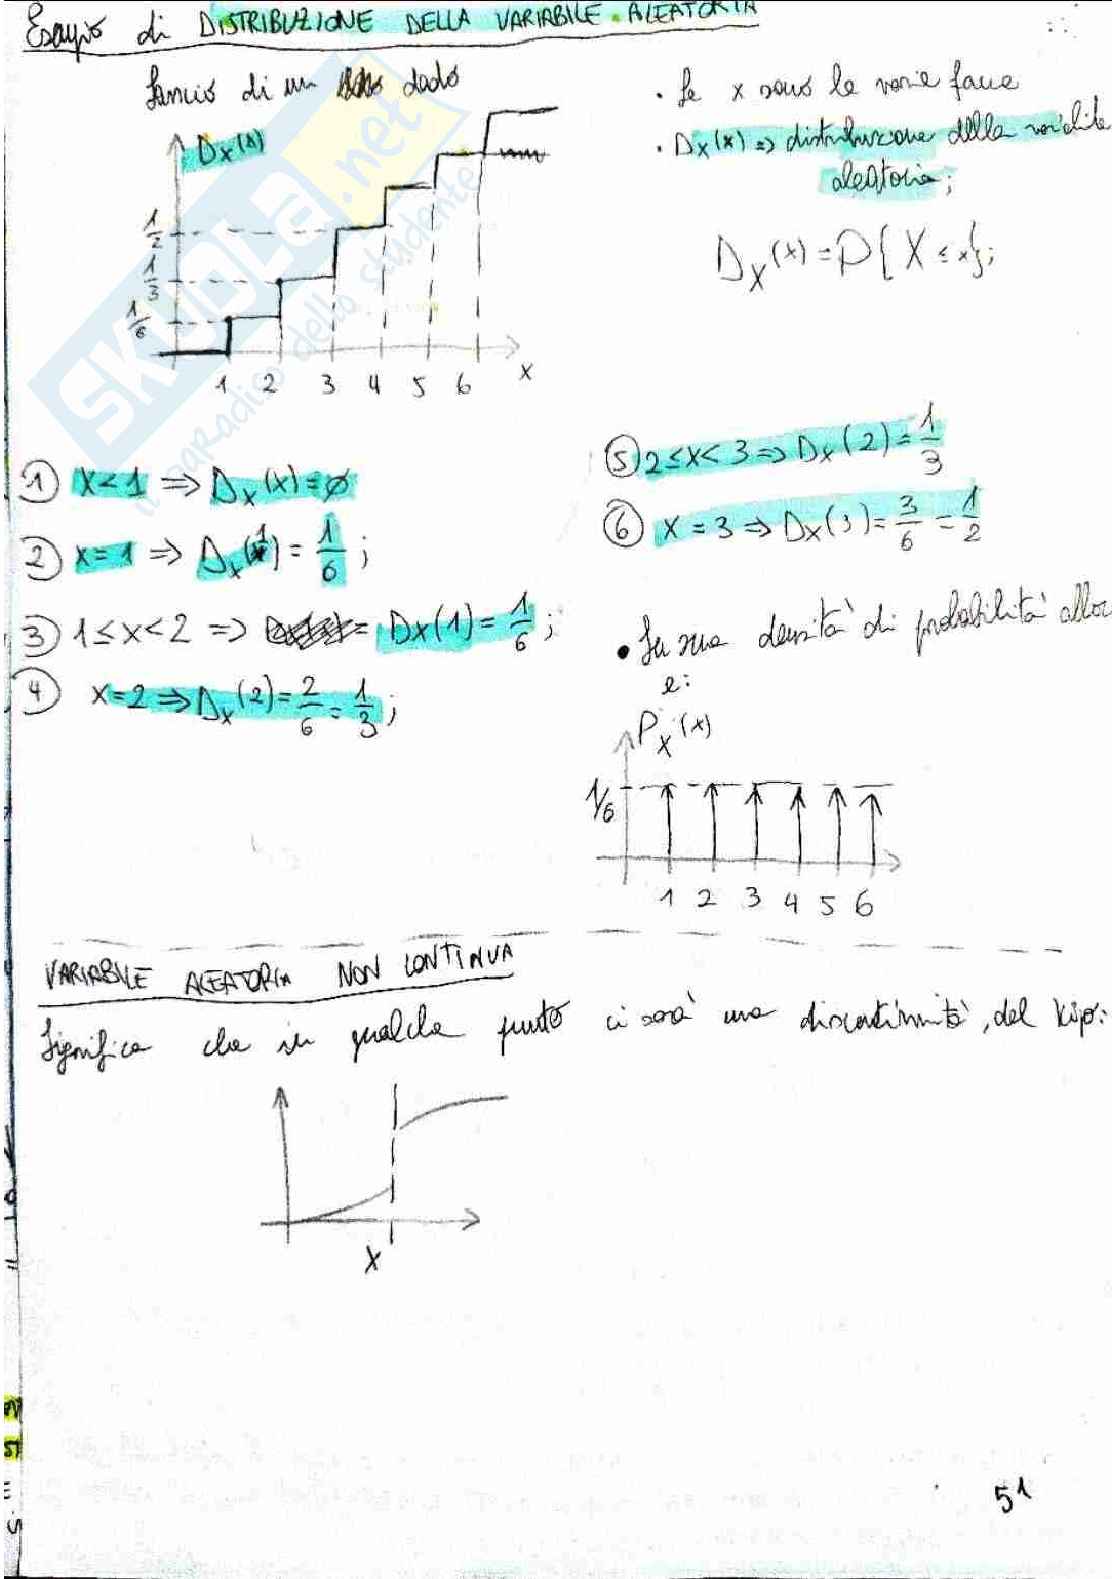 Esempio di DISTRIBUZIONE DELLA VARIABILE ALEATORIA
Lancio di un dado
Dx(x)
1/2
1/3
1/6
1 2 3 4 5 6 x
SKUOLA.net
il paradiso dello studente
• Se x sono le varie facce
• Dx(x) => distribuzione della variabile
aleatoria;
Dx(x) = P{X ≤ x};
① x<1 => Dx(x)=ø
② x=1 => Dx(1) = 1/6 ;
③ 1≤x<2 => = Dx(1) = 1/6 ;
④ x=2 => Dx(2) = 2/6 = 1/3 ;
⑤ 2≤x<3 => Dx(2) = 1/3
⑥ x=3 => Dx(3) = 3/6 = 1/2
• La sua densità di probabilità allor
è:
Px(x)
1/6
1 2 3 4 5 6
VARIABILE ALEATORIA NON CONTINUA
Significa che in qualche punto ci sarà una discontinuità, del tipo:
x
51